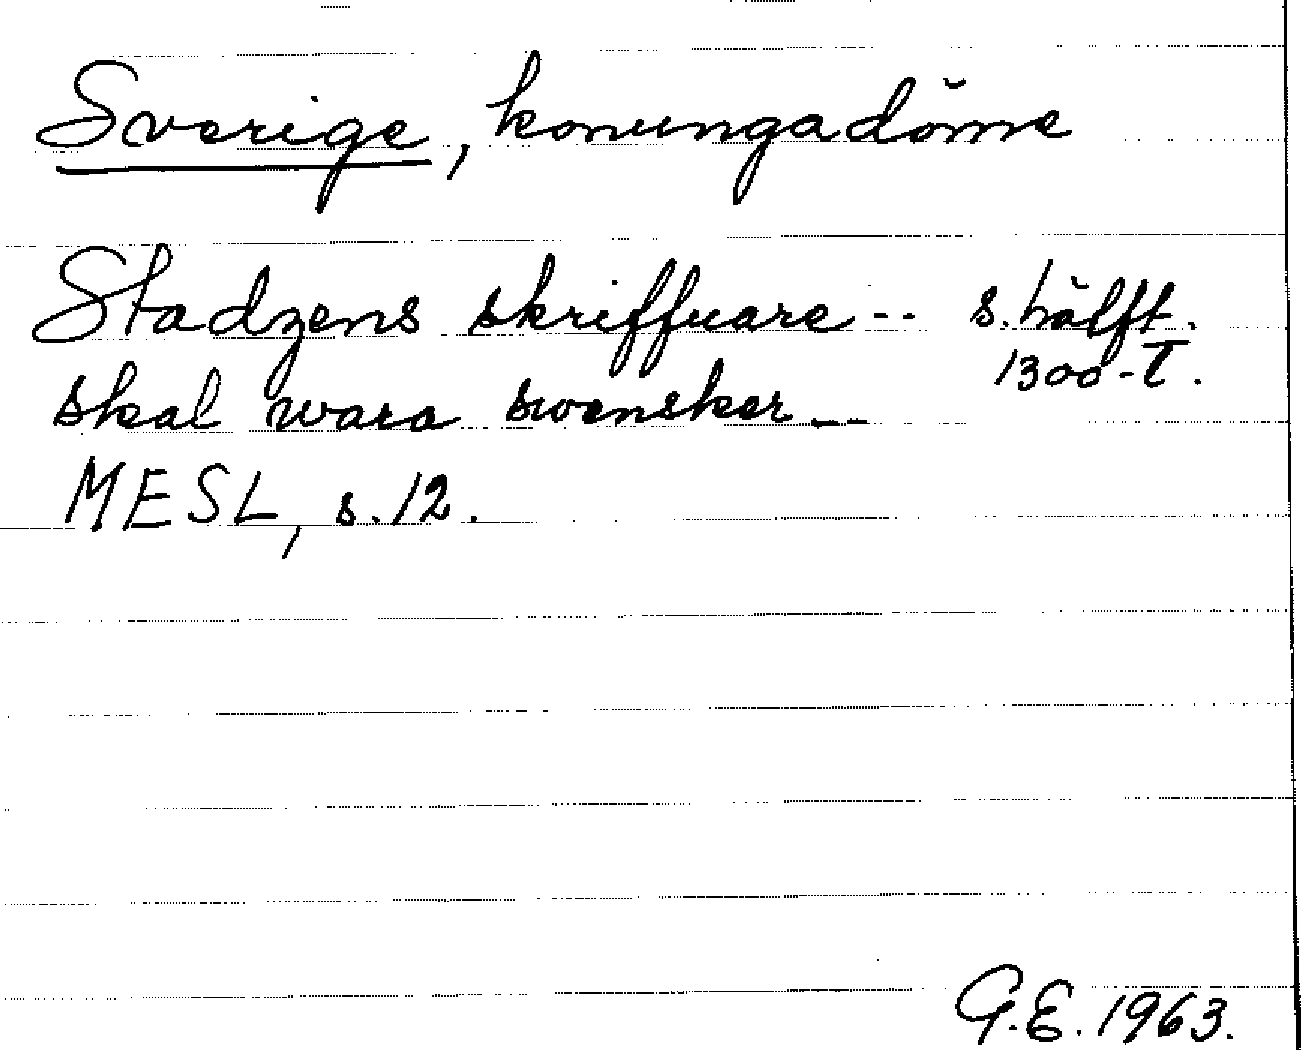 Sverige, konungadöme
Stadzens skriffuare -- s. hälft.
1300-t.
skal wara swensker --
MESL, s. 12.
G.E. 1963.